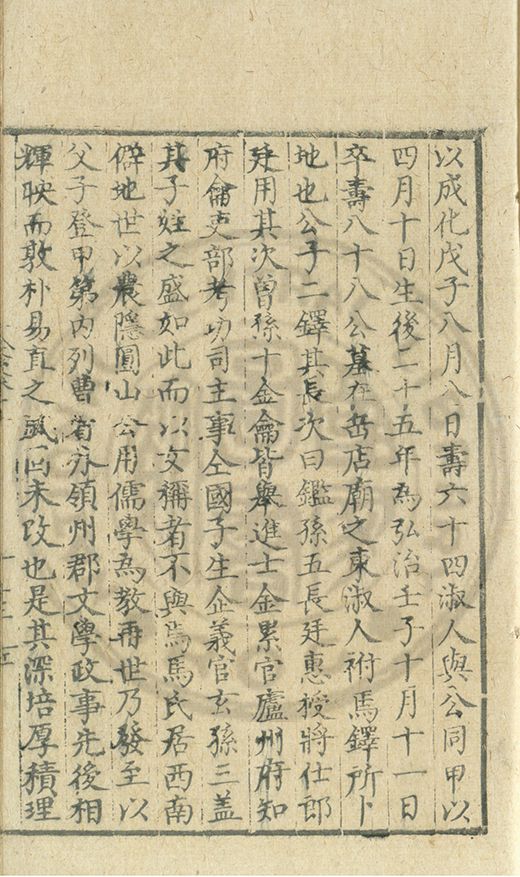 以成化戊子八月八日壽六十四淑人與公同甲以
四月十日生後二十五年為弘治壬子十月十一日
卒壽八十八公墓在岳店廟之東淑人祔焉鐸所卜
地也公子二鐸其長次曰鑑孫五長廷惠授將仕郎
廷用其次曾孫十金侖皆舉進士金累官廬州府知
府侖吏部考功司主事仝國子生企義官玄孫三蓋
其子姓之盛如此而以文稱者不與焉馬氏居西南
僻地世以農隱圓山公用儒學為教再世乃發至以
父子登甲第內列曹省外領州郡文學政事先後相
輝映而敦朴易直之風囙未改也是其深培厚積理